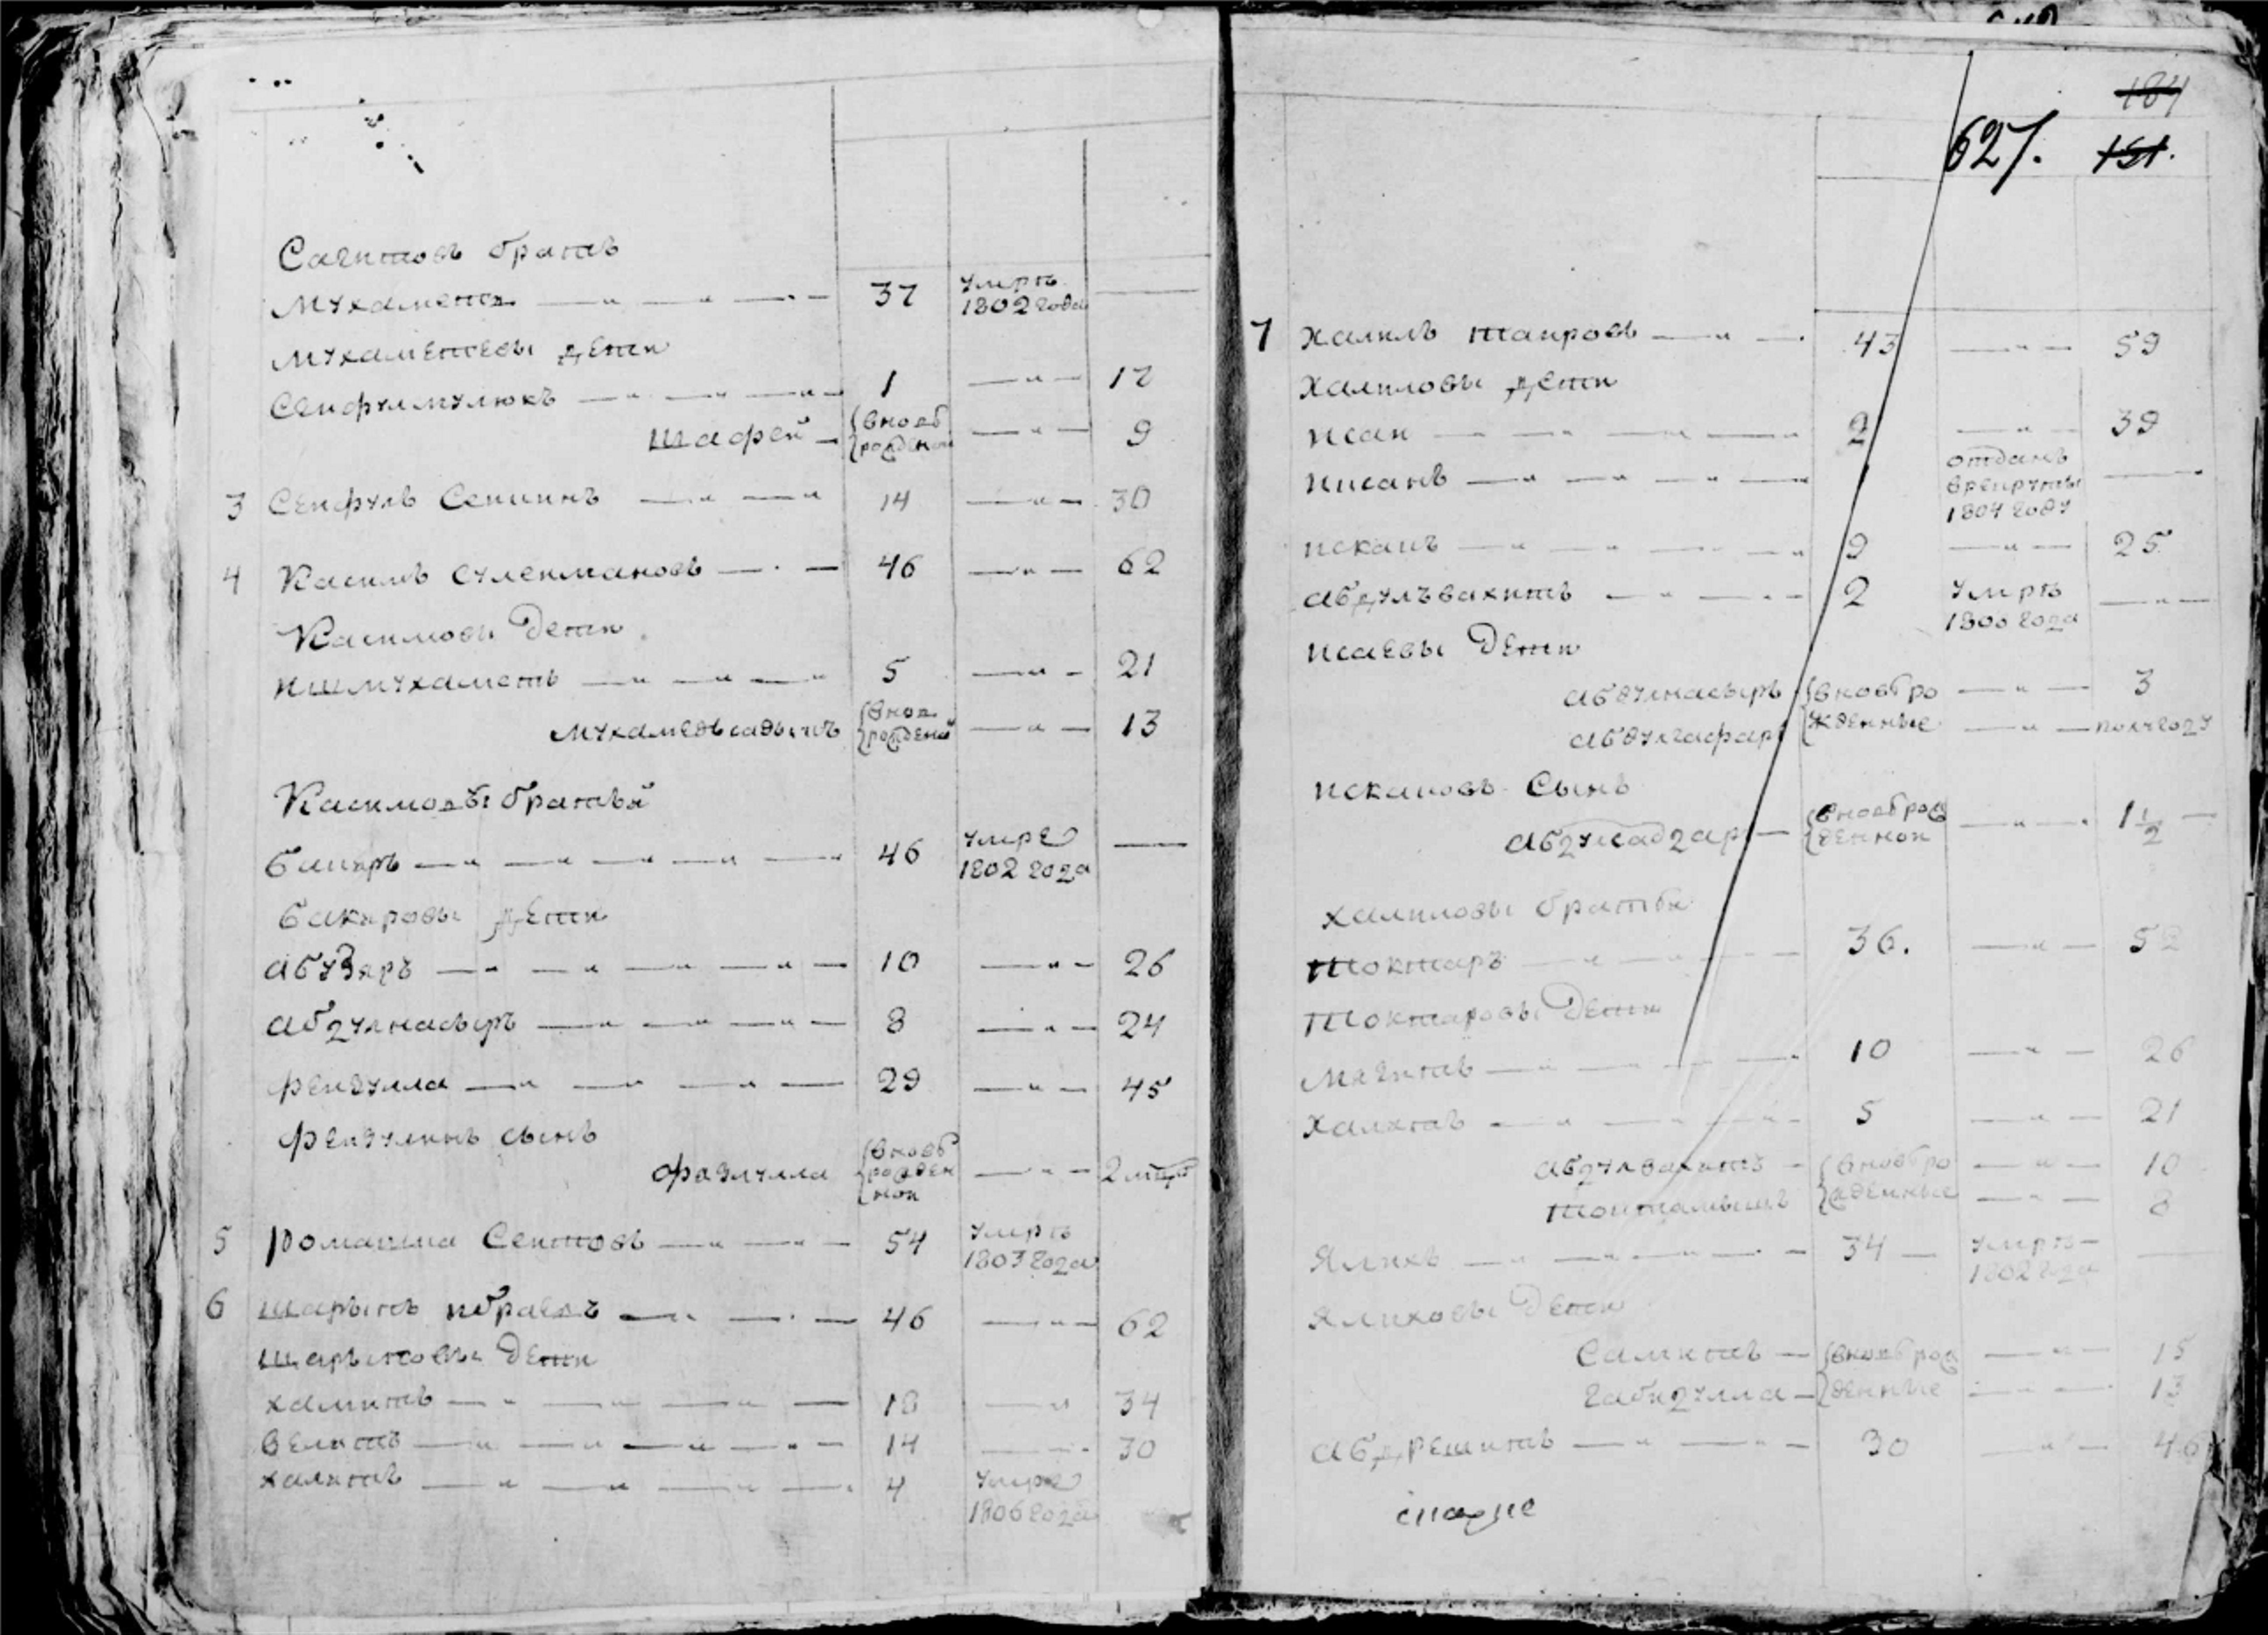 Сагитовъ братъ
Мухаметъ 37 умръ 1802 года
Мухаметевы дети
Сеифулмулюкъ 1 12
Шафеи вновь рожденои 9
3 Сеифуль Сеитинъ 14 30
4 Касимъ Сулеимановъ 46 62
Касимовы дети
Ишмухаметь 5 21
Мухамедьсадыкъ вновь рожденои 13
Касимовы братья
Бакиръ 46 умре 1802 года
Бакировы дети
Абузяръ 10 26
Абдулнасыръ 8 24
Феизулла 29 45
Феизулинъ сынъ
Фазлулла вновь рожденнои 2
5 Романша Сеитовъ 54 умръ 1803 года
6 Шарыпъ 46 62
Шарыповы дети
Халитъ 18 34
Велитъ 14 30
Халитъ 4 умре 1806 года
184
627. 151.
7 Халилъ Таировъ 43 59
Халиловы дети
Исаи 2 39
отданъ в рекруты 1804 году
Искакъ 9 25
Абдулъвахитъ 2 умръ 1806 года
Исаевы дети
Абдулнасыръ вновь ро 3
Абдулгафаръ жденные полугоду
Искаковъ сынъ
вновь рож денной 1 1/2
Халиловы братья
Токтаръ 36. 52
Токтаровы дети
Магитъ 10 26
Халитъ 5 21
Абдулвахитъ вновь ро 10
Тохтамышъ жденные 8
Ялихъ 34 умръ 1802 года
Ялиховы дети
Самитъ вновь рож 15
Габидулла денные 13
Абдрешитъ 30 46